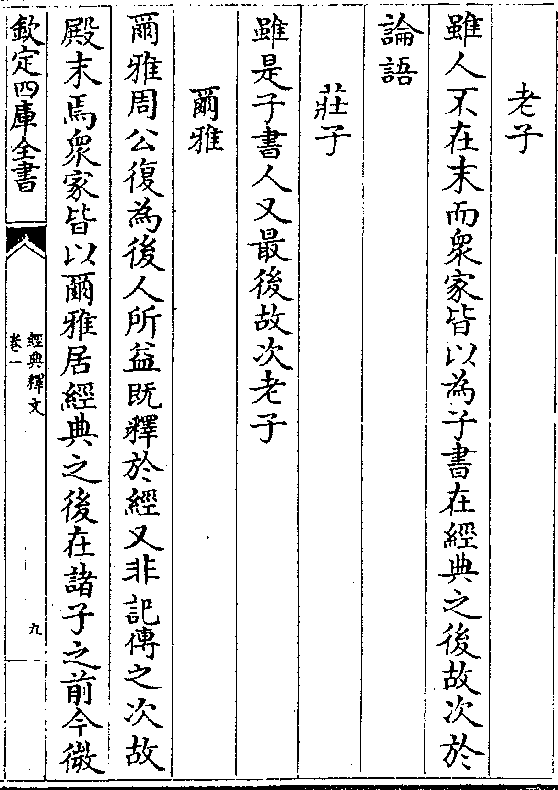 老子
雖人不在末而衆家皆以為子書在經典之後故次於
論語
莊子
雖是子書人又最後故次老子
爾雅
爾雅周公復為後人所益既釋於經又非記傳之次故
殿末焉衆家皆以爾雅居經典之後在諸子之前今微
欽定四庫全書
經典釋文
卷一
九